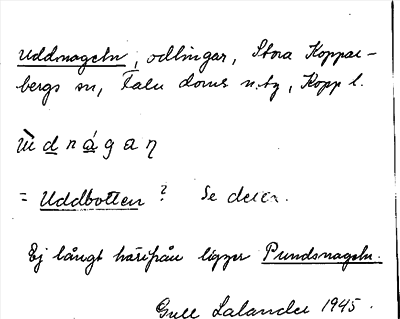 Uddnageln, odlingar, Stora Koppar-
bergs sn, Falu doms. n:tg, Kopp l.
ùdnágaη
= Uddbotten? Se denna.
Ej långt härifrån ligger Pundsnageln.
Gull Lalander 1945.